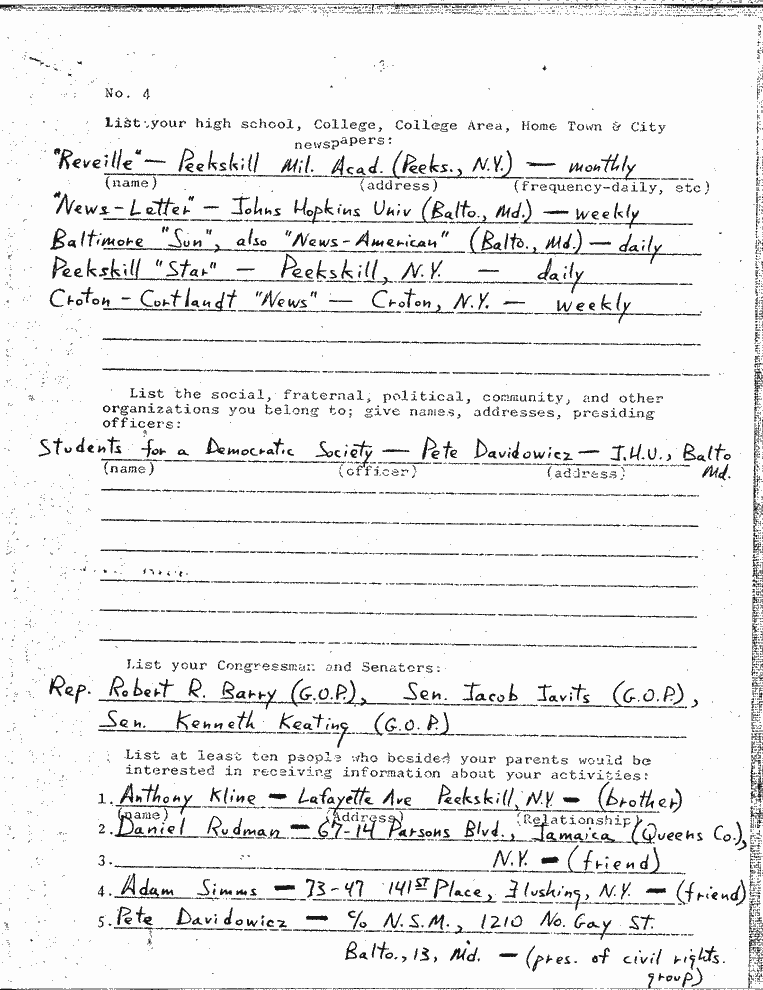 3
No. 4
List your high school, College, College Area, Home Town & City
newspapers:
"Reveille" — Peekskill Mil. Acad. (Peeks., N.Y.) — monthly
(name) (address) (frequency-daily, etc)
"News-Letter" — Johns Hopkins Univ (Balto., Md.) — weekly
Baltimore "Sun", also "News-American" (Balto., Md.) — daily
Peekskill "Star" — Peekskill, N.Y. — daily
Croton-Cortlandt "News" — Croton, N.Y. — weekly
List the social, fraternal, political, community, and other
organizations you belong to; give names, addresses, presiding
officers:
Students for a Democratic Society — Pete Davidowicz — J.H.U., Balto
(name) (officer) (address) Md.
List your Congressman and Senators:
Rep. Robert R. Barry (G.O.P.), Sen. Jacob Javits (G.O.P.),
Sen. Kenneth Keating (G.O.P.)
List at least ten people who besided your parents would be
interested in receiving information about your activities:
1. Anthony Kline — Lafayette Ave Peekskill, N.Y. — (brother)
(name) (Address) (Relationship)
2. Daniel Rudman — 67-14 Parsons Blvd., Jamaica (Queens Co.),
3. N.Y. — (friend)
4. Adam Simms — 73-47 141st Place, Flushing, N.Y. — (friend)
5. Pete Davidowicz — c/o N.S.M., 1210 No. Gay St.
Balto., 13, Md. — (pres. of civil rights.
group)